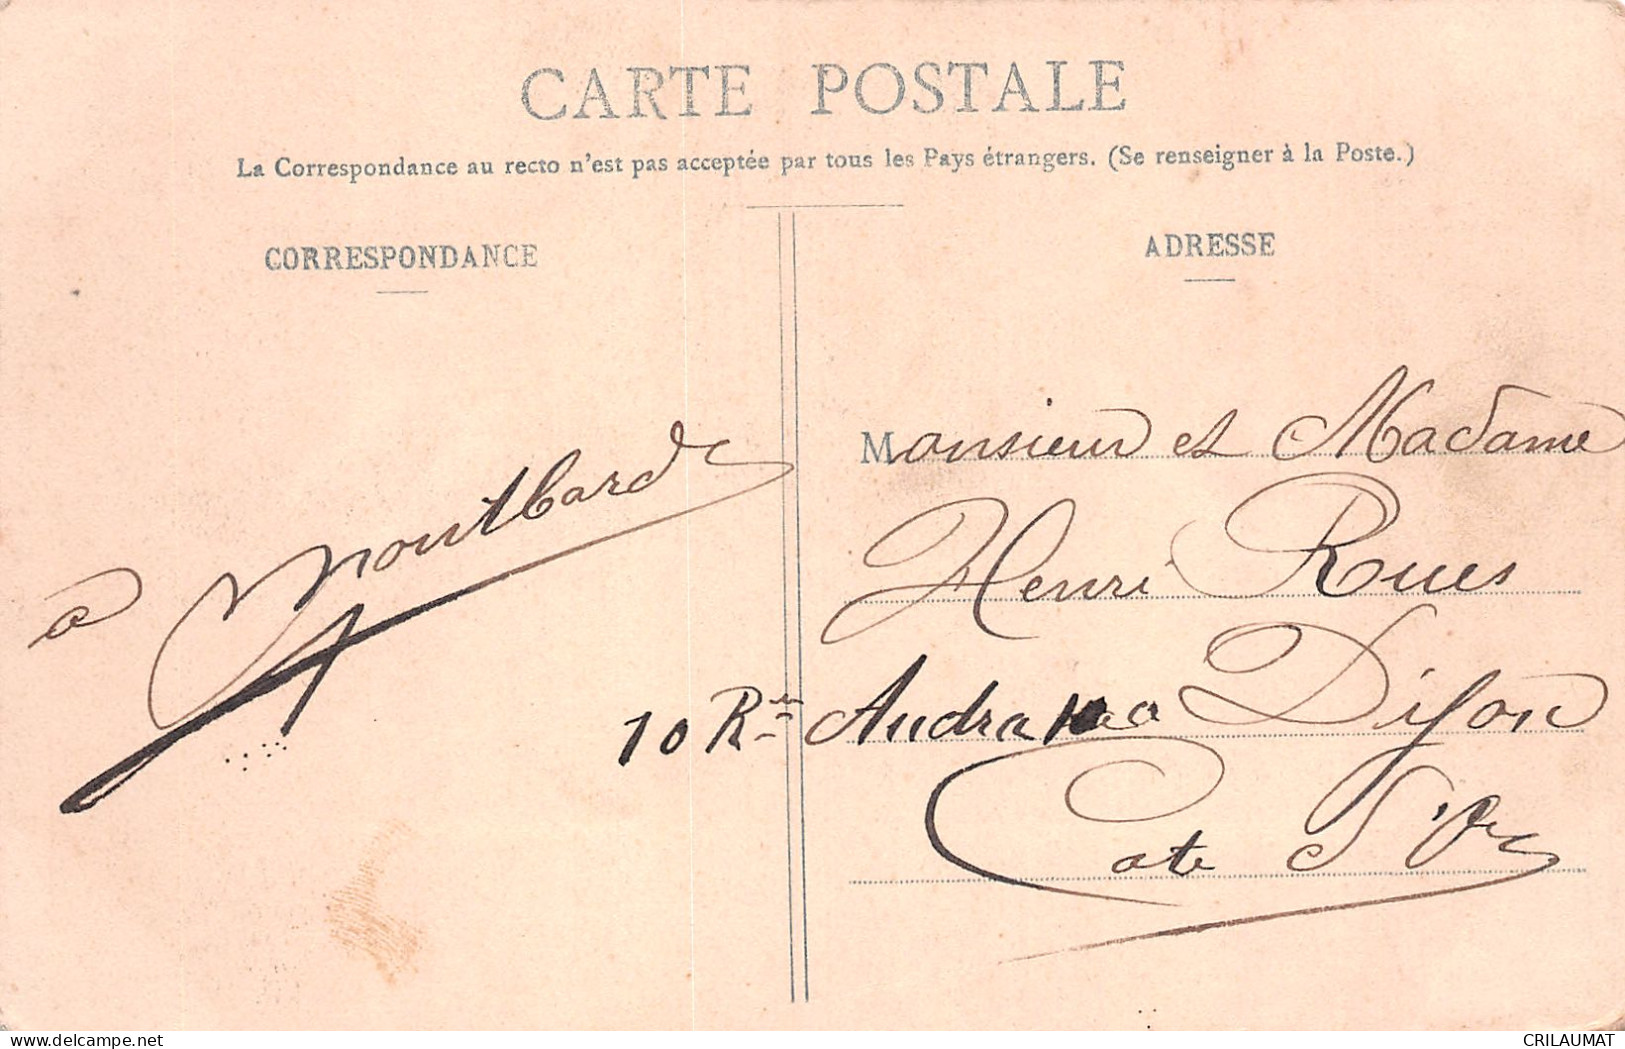 CARTE POSTALE
La Correspondance au recto n'est pas acceptée par tous les Pays étrangers. (Se renseigner à la Poste.)
CORRESPONDANCE
à Montbard
ADRESSE
Monsieur et Madame
Henri Rues
10 R Dijon
Cote d'Or
CRILAUMAT